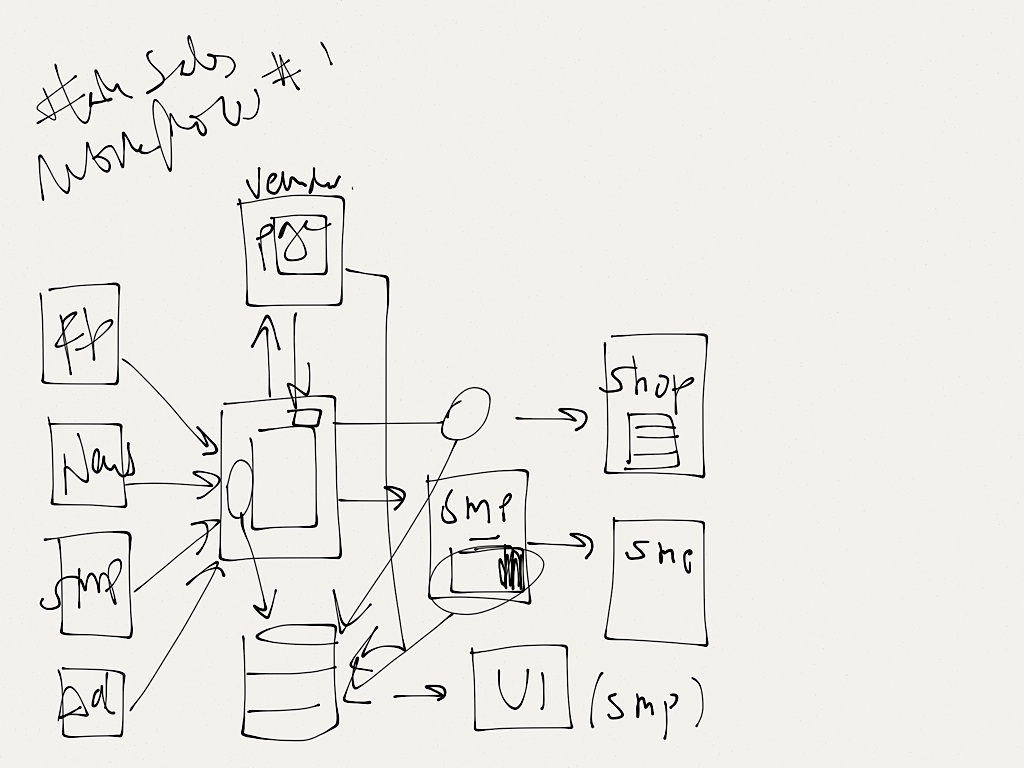 Sales # 1
Workflow
Vendor.
Page
FP
News
SMP
Ad
Shop
SMP
SMP
UI (SMP)